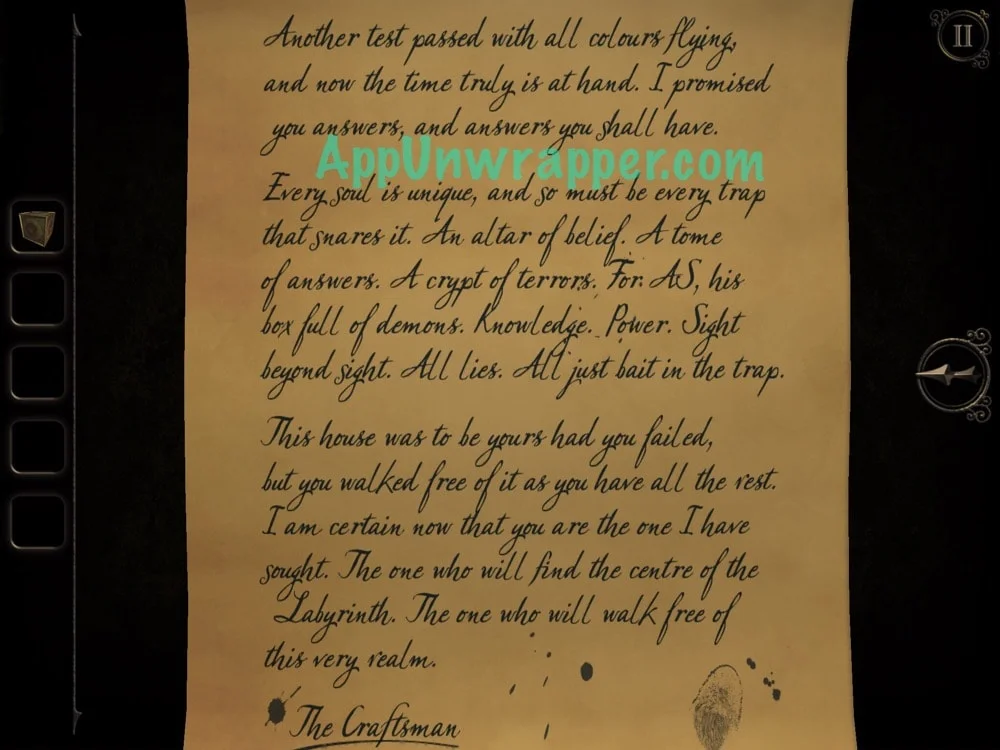 Another test passed with all colours flying,
and now the time truly is at hand. I promised
you answers, and answers you shall have.
AppUnwrapper.com
Every soul is unique, and so must be every trap
that snares it. An altar of belief. A tome
of answers. A crypt of terrors. For AS, his
box full of demons. Knowledge. Power. Sight
beyond sight. All lies. All just bait in the trap.
This house was to be yours had you failed,
but you walked free of it as you have all the rest.
I am certain now that you are the one I have
sought. The one who will find the centre of the
Labyrinth. The one who will walk free of
this very realm.
The Craftsman